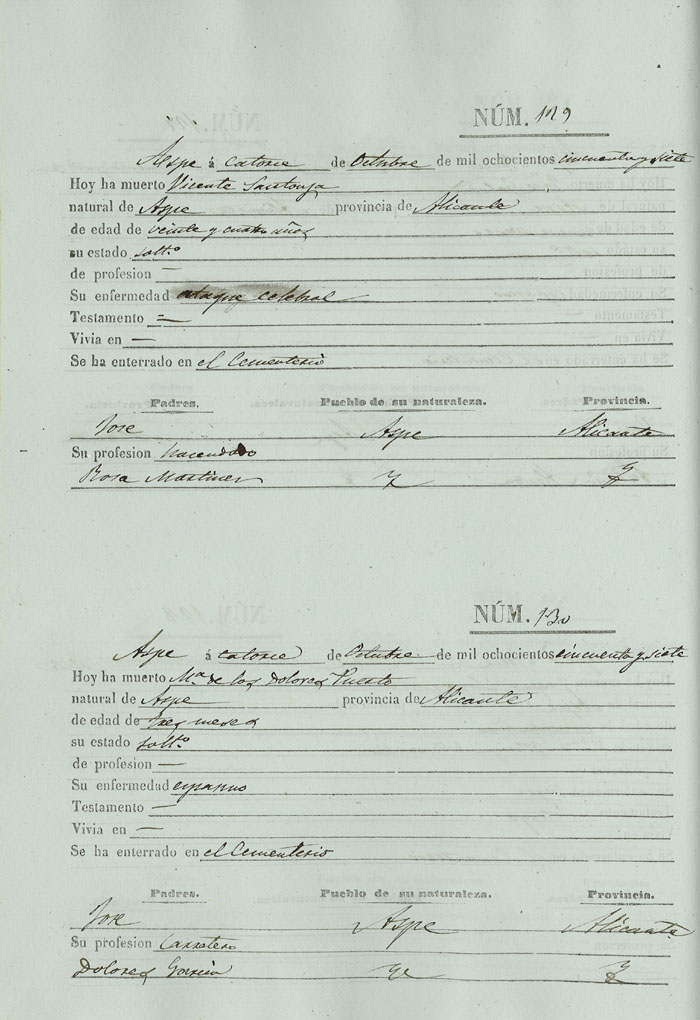 NÚM. 129
Aspe á catorce de Octubre de mil ochocientos cincuenta y siete
Hoy ha muerto Vicente Santonja
natural de Aspe provincia de Alicante
de edad de veinte y cuatro años
su estado soltº
de profesion —
Su enfermedad ataque celebral
Testamento =
Vivia en —
Se ha enterrado en el Cementerio
Padres. Pueblo de su naturaleza. Provincia.
Jose Aspe Alicante
Su profesion hacendado
Rosa Martinez
NÚM. 130
Aspe á catorce de Octubre de mil ochocientos cincuenta y siete
Hoy ha muerto Mª de los Dolores Puerto
natural de Aspe provincia de Alicante
de edad de tres meses
su estado soltº
de profesion —
Su enfermedad espasmo
Testamento —
Vivia en —
Se ha enterrado en el Cementerio
Padres. Pueblo de su naturaleza. Provincia.
Jose Aspe Alicante
Su profesion Carretero
Dolores Garcia